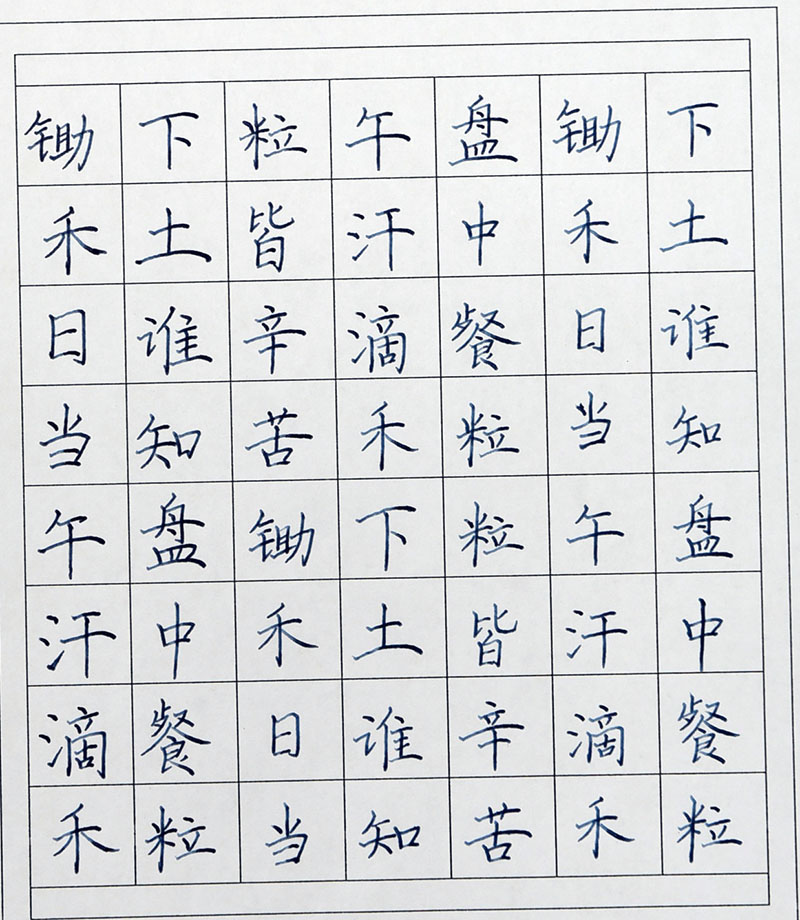 锄禾日当午汗滴禾
下土谁知盘中餐粒
粒皆辛苦锄禾日当
午汗滴禾下土谁知
盘中餐粒粒皆辛苦
锄禾日当午汗滴禾
下土谁知盘中餐粒